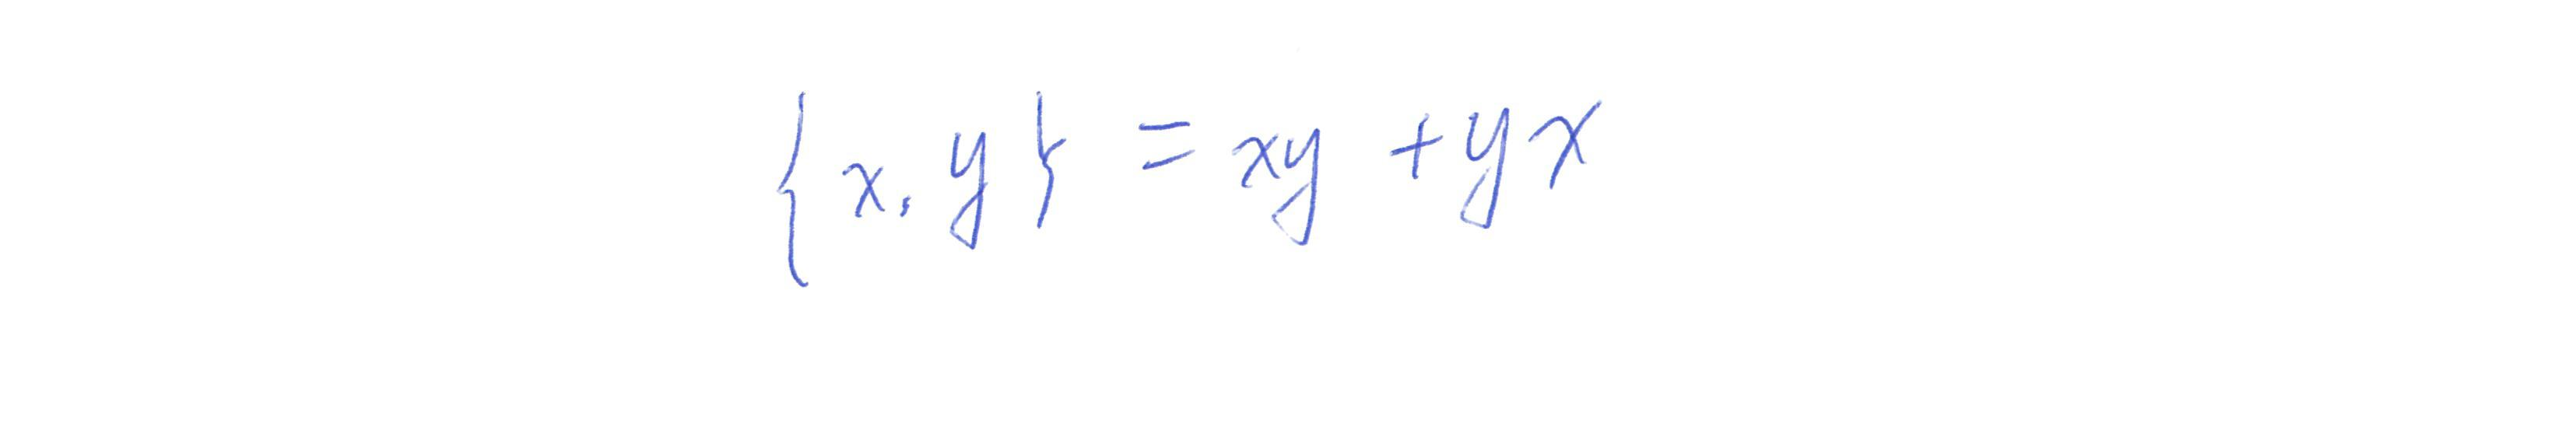 {x, y} = xy + yx